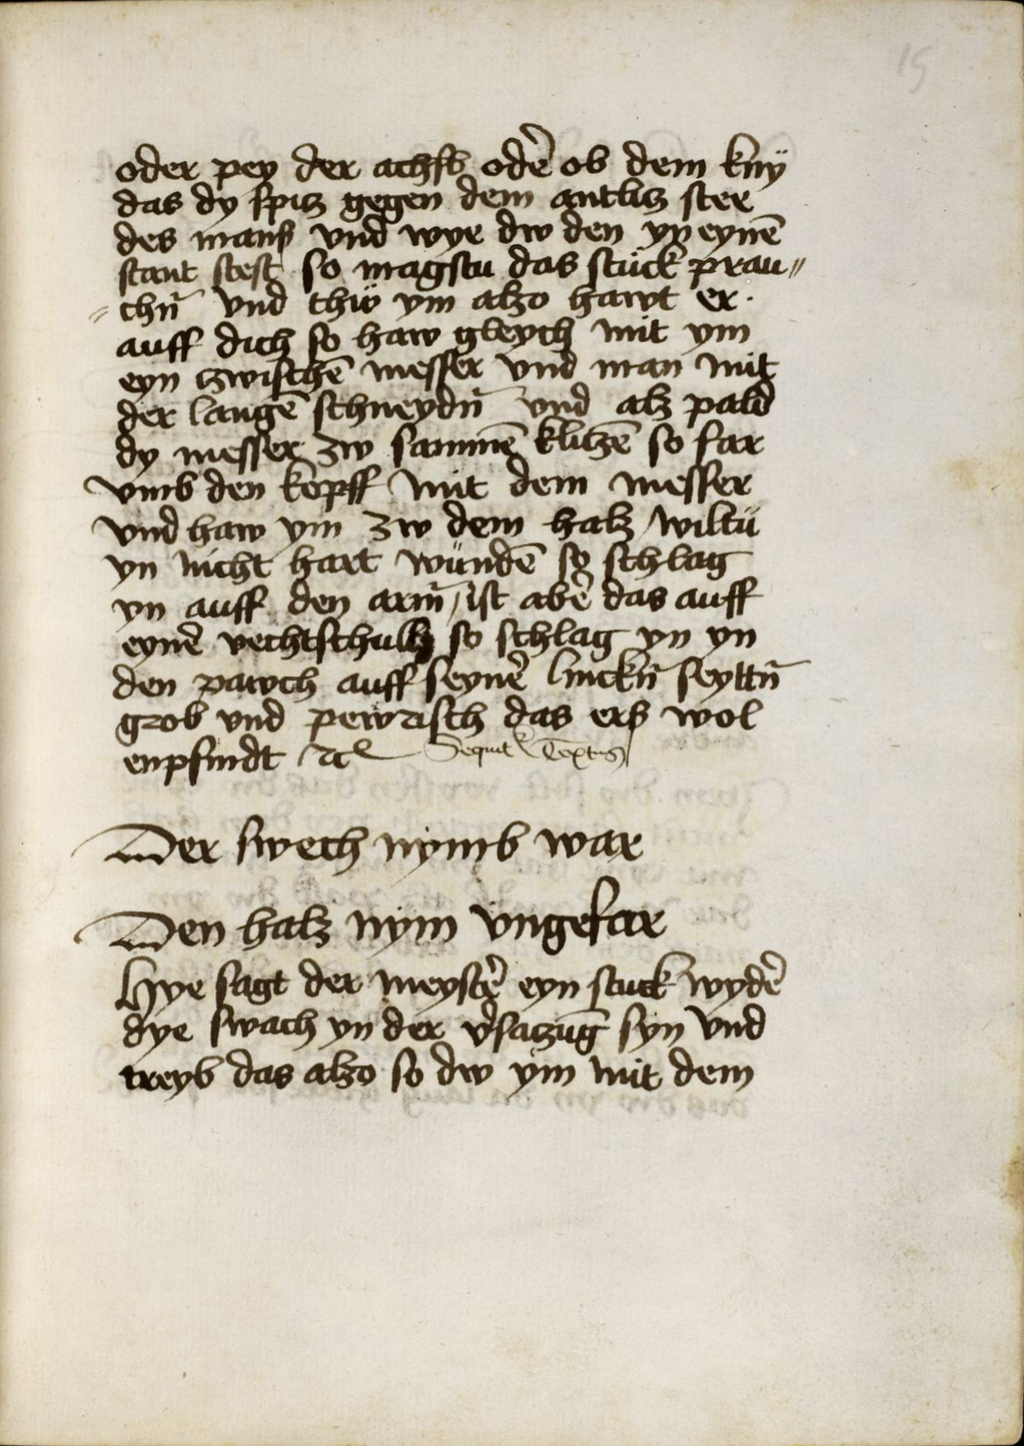 15
oder pey der achsl̃ odẽ ob dem knÿ
das dy spitz gegen dem antlitz stee
des mans vnd wye dw den yn eynẽ
stant stest so magstu das stuck prau〃
〃chñ vnd thw̋ ym alzo hawt er ·
auff dich so haw gleych mit ym
eyn zwischẽ messer vnd man mit
der langẽ schneydñ vnd alz pald
dy messer zw sammẽ klitzẽ so far
vmb den kopff mit dem messer
vnd haw ym zw dem halz / wiltü
yn nicht hart wündẽ so schlag
yn auff den arm̃ / ist abẽ das auff
eynẽ vechtschull so schlag yn yn
den pawch auff seynẽ linckñ seyttñ
grob vnd pewrisch das ers wol
enpfindt ⁊c̃ Sequit̃ Textus
Der swech nymb war
Den halz nym vngefar
Hye sagt der meystẽ eyn stuck wydẽ
dye swach yn der v̓satzũg syn vnd
treyb das alzo so dw ym mit dem